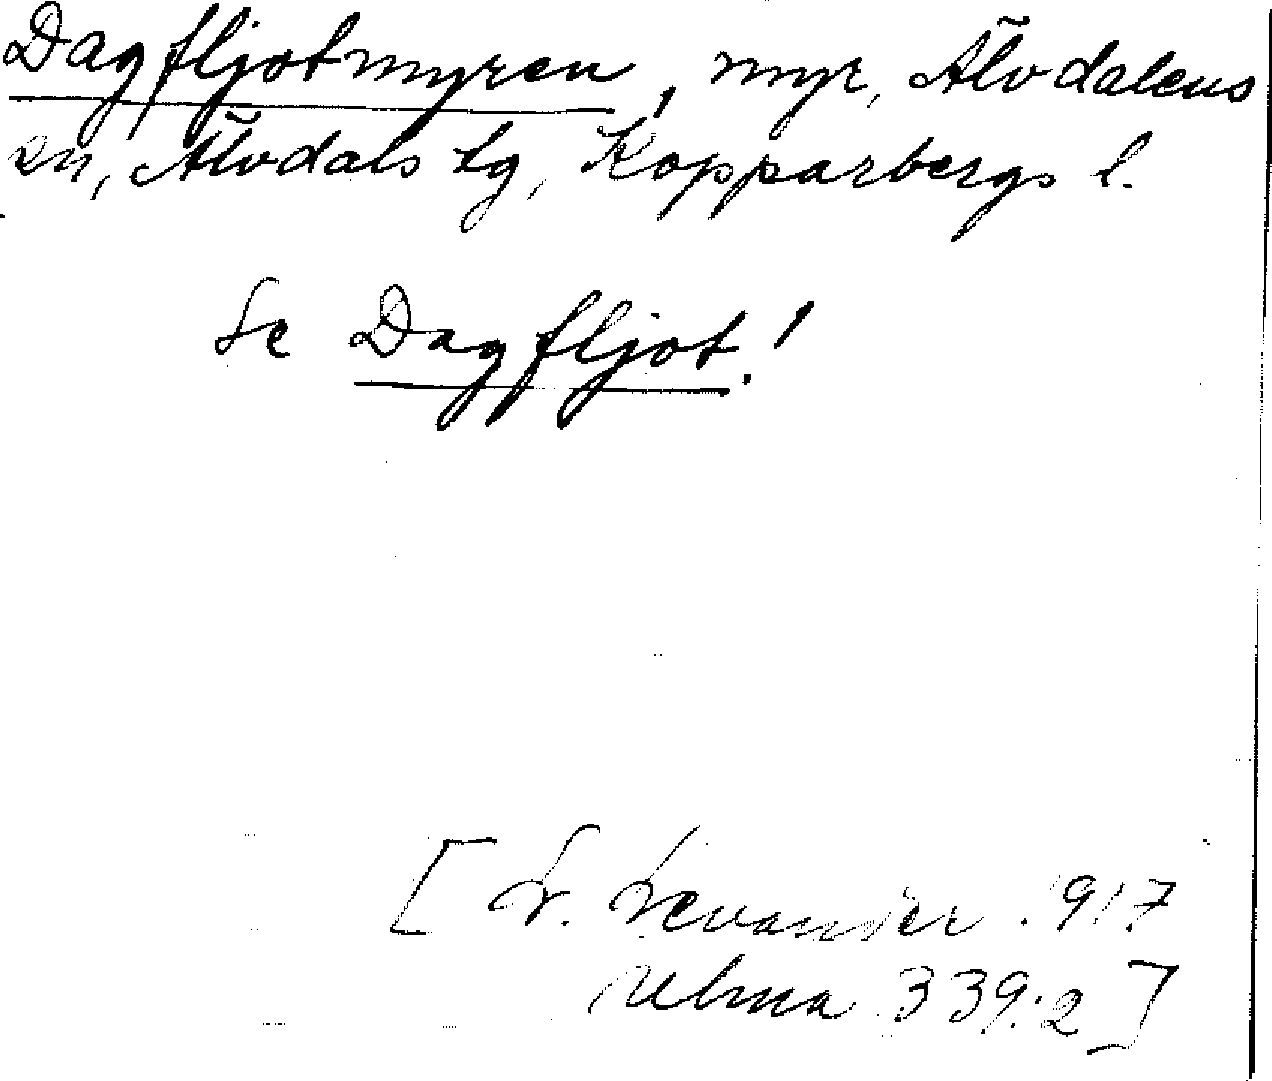 Dagfljotmyren, myr, Älvdalens
sn, Älvdals tg, Kopparbergs l.
Se Dagfljot!
[L. Levander 1917
Ulma 339:2]